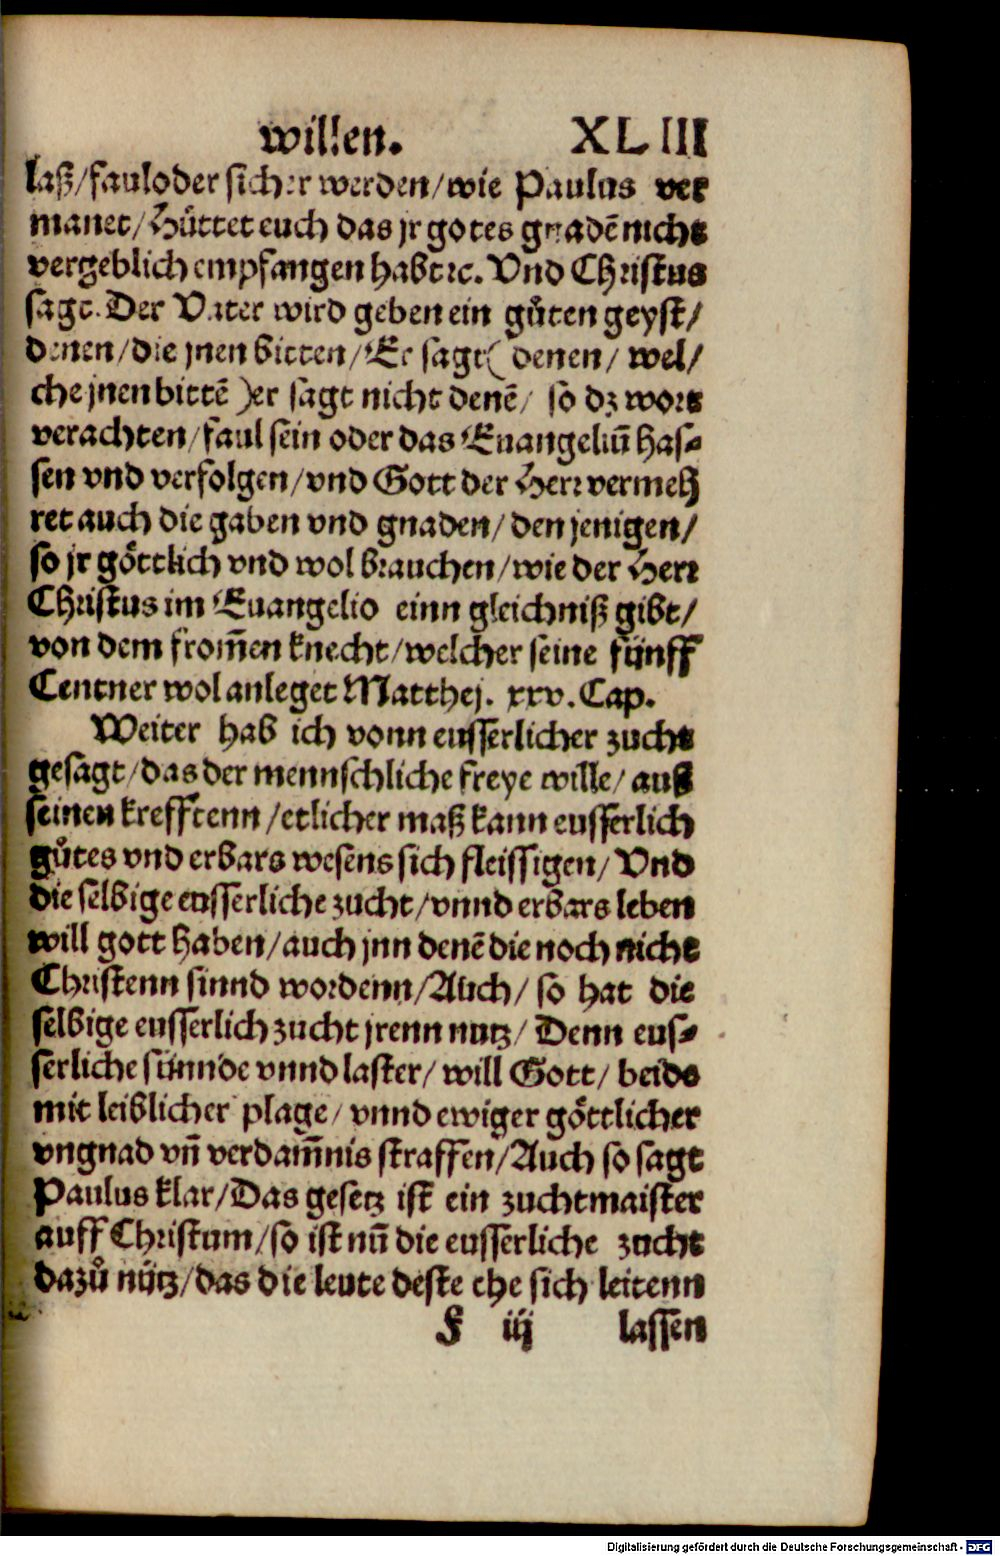 willen. XLIII
laß/faul oder sicher werden/wie Paulus ver
manet/Hüttet euch das jr gotes gnadẽ nicht
vergeblich empfangen habt ꝛc. Vnd Christus
sagt. Der Vater wird geben ein gůten geyst/
denen/die jnen bitten/Er sagt( denen/ wel/
che jnen bittẽ )er sagt nicht denẽ/ so dz wort
verachten/faul sein oder das Euangeliũ has-
sen vnd verfolgen/vnd Gott der Herr vermeh
ret auch die gaben vnd gnaden/den jenigen/
so jr göttlich vnd wol brauchen/wie der Herr
Christus im Euangelio einn gleichniß gibt/
von dem from̃en knecht/welcher seine fünff
Centner wol anleget Matthej. xxv. Cap.
Weiter hab ich vonn eusserlicher zucht
gesagt/das der mennschliche freye wille/auß
seinen krefftenn/etlicher maß kann eusserlich
gůtes vnd erbars wesens sich fleissigen/Vnd
die selbige eusserliche zucht/vnnd erbars leben
will gott haben/auch jnn denẽ die noch nicht
Christenn sinnd wordenn/Auch/ so hat die
selbige eusserlich zucht jrenn nutz/ Denn eus-
serliche sünnde vnnd laster/ will Gott/ beide
mit leiblicher plage/ vnnd ewiger göttlicher
vngnad vñ verdam̃nis straffen/Auch so sagt
Paulus klar/Das gesetz ist ein zuchtmaister
auff Christum/so ist nũ die eusserliche zucht
dazů nütz/das die leute deste ehe sich leitenn
F iij lassen
Digitalisierung gefördert durch die Deutsche Forschungsgemeinschaft - DFG